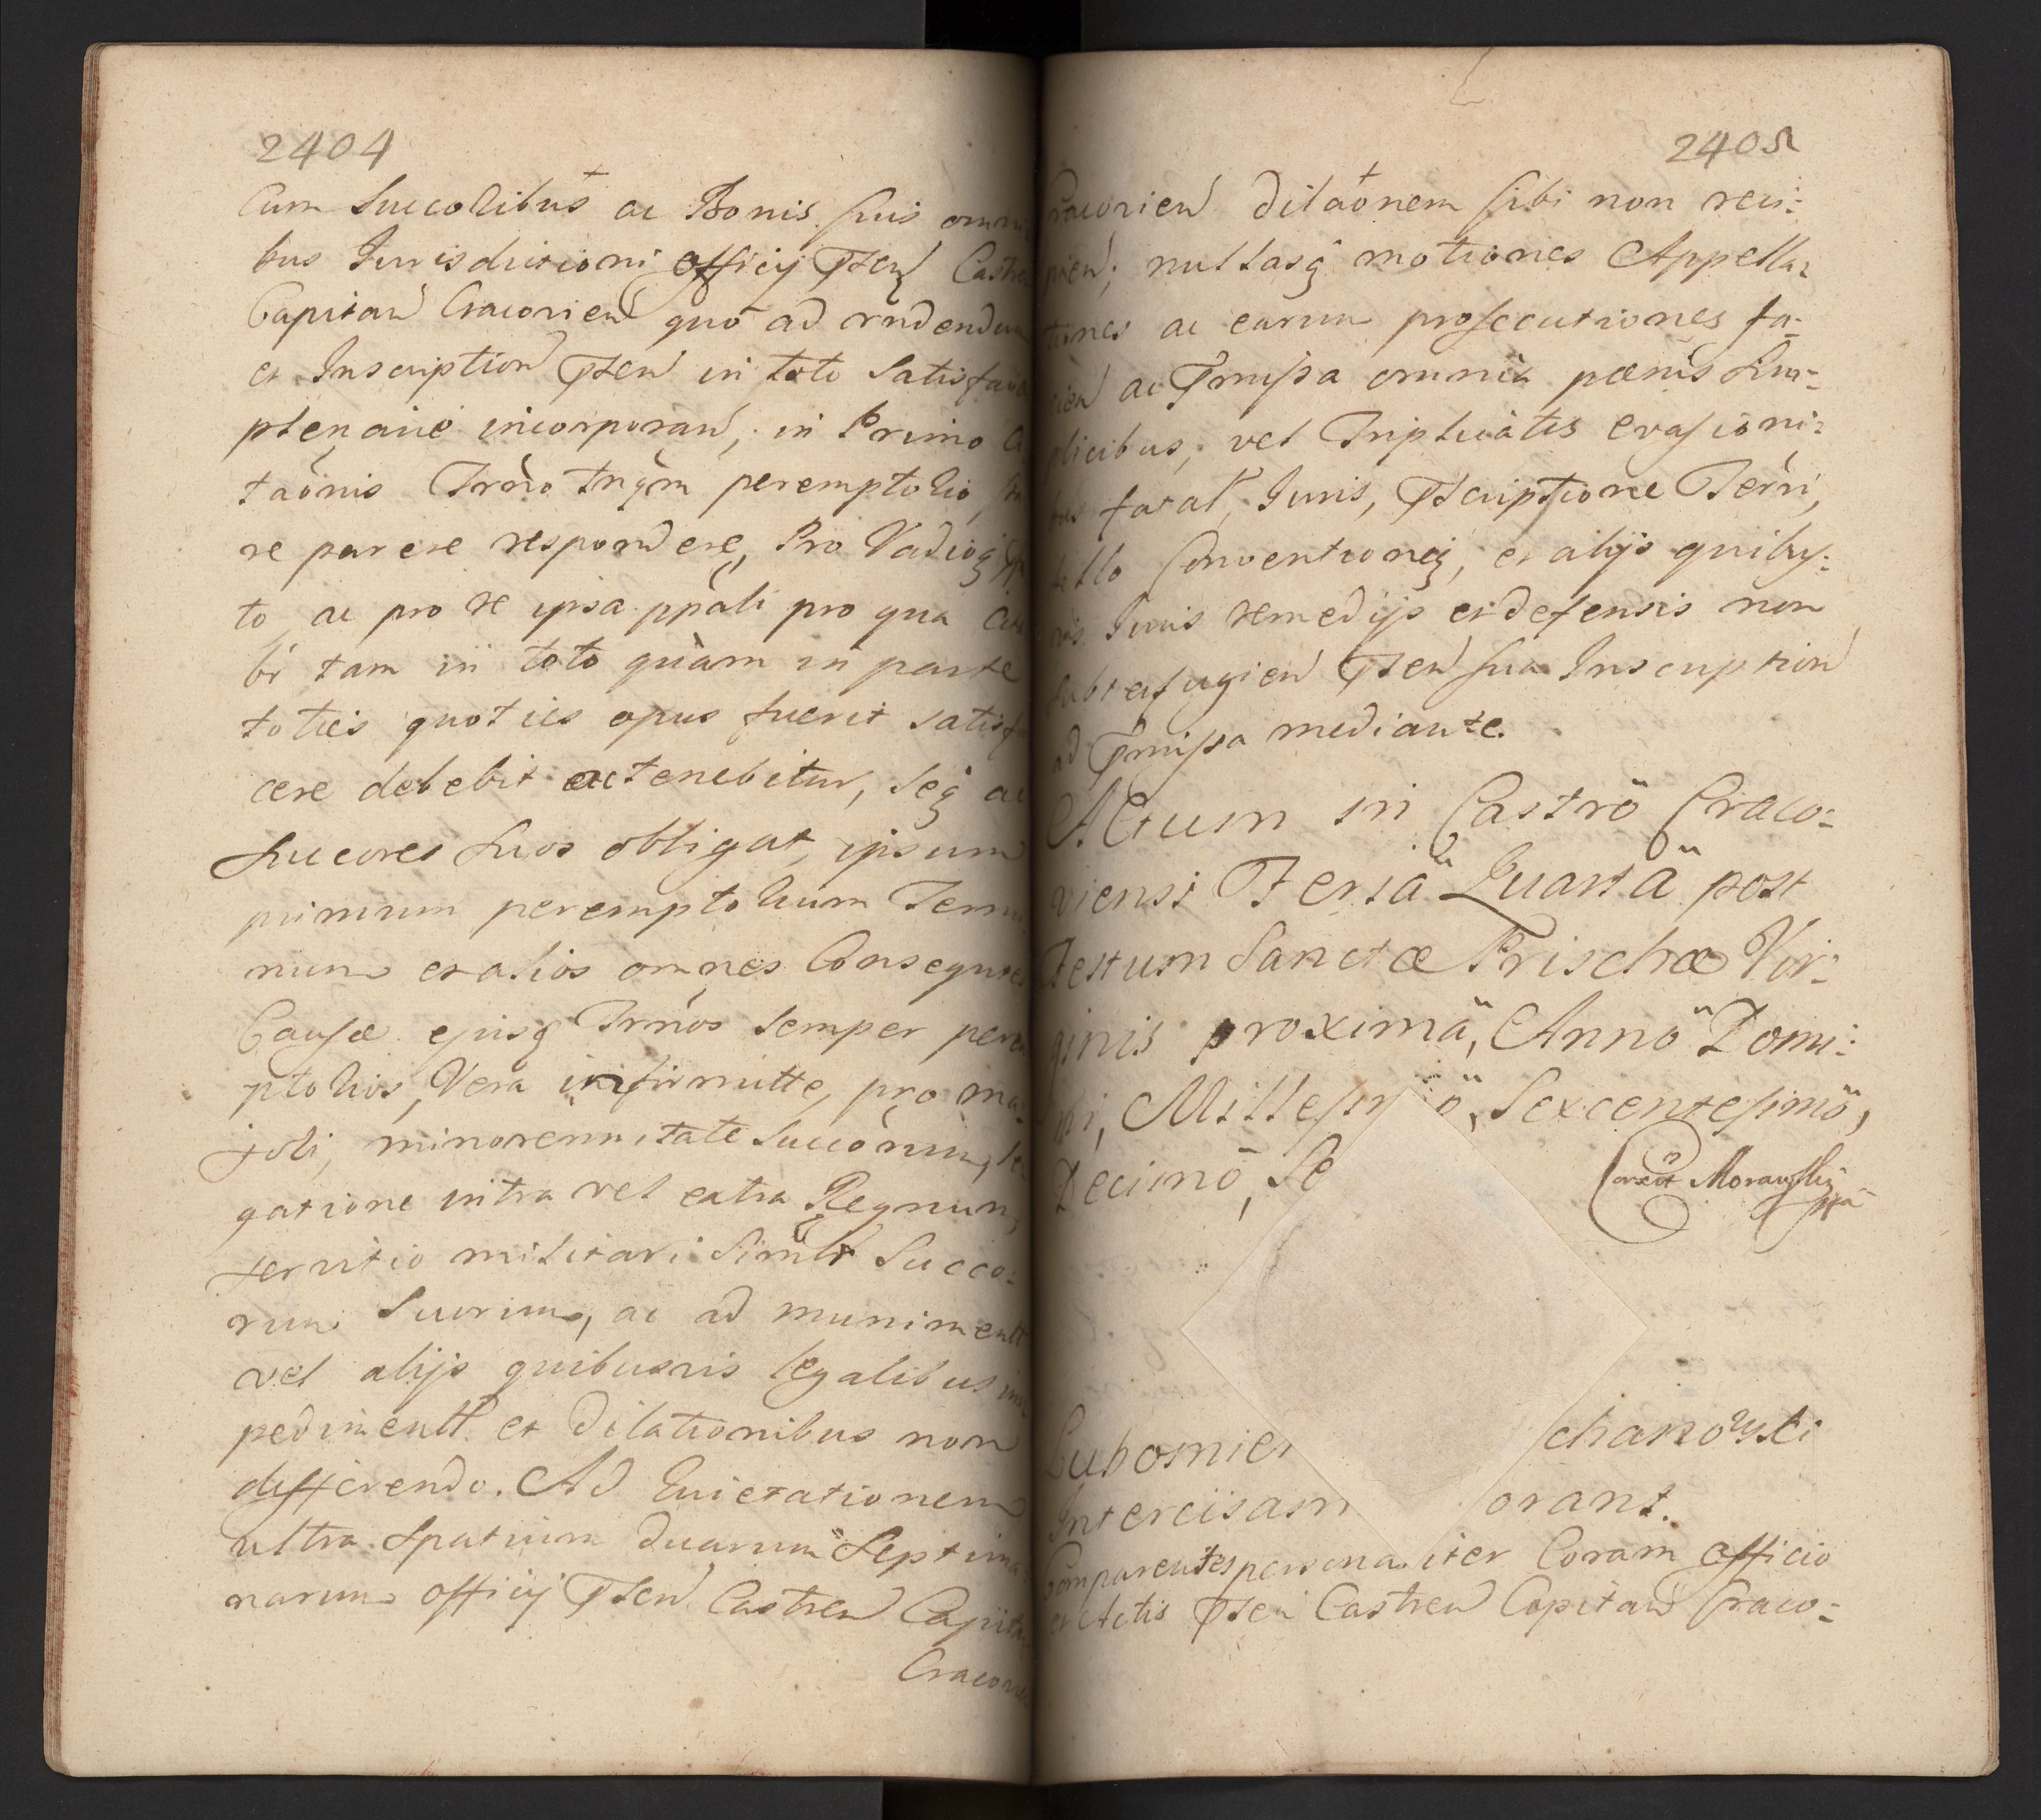 2404
Cum Succolibus ac Bonis suis omni
bus Jurisdictioni officij Pñen Castr
Capitan Cracovien quo ad rñdendum
et Inscription Pñen in toto Satisfaci
plenarie incorporand, in Primo Ci
taõnis Trño tnqm peremptolio, sta
re parere respondere, Pro Vadioq
to ac pro re ipsa ppali pro qua
bi tam in toto quàm in parte
toties quoties opus fuerit satisfa
cere debebit ac tenebitur, Seq ac
Succores Suos obligat, ipsum
primum peremptolium Termi
num et alios omnes Consequtes
Causæ ejusq Trños semper perem
ptolios, Vera infirmitte, pro ma
joli, minorennitate Succorum, le
gatione intra vel extra Regnum,
servitio militari Simlr Succo:
rum Suorum, ac ad munimentt
vel alijs quibusvis legalibus im
pedimentt et Dilationibus non
differendo. Ad Evictationem
ultra Spatium duarum Septima
narum officij Pñen Castren Capita
Cracovien
2405
Cracovien dilaõnem sibi non reci:
pien, nullasq motiones Appella:
tiones ac earum prosecutiones fa:
cien ac Pmissa omnia pœnis Sim:
plicibus, vel Triplicatis evasioni:
bus fatal, Juris, Pscriptione Terri,
bello Conventioneq, et alijs quibus:
vis Juris remedijs et defensis non
subterfugien Pñen sua Inscription
ad Pmissa mediante.
Actum in Castrõ Craco:
viensi Feriä Quartä post
Festum Sanctæ Prischæ Vir:
ginis proximä, Annö Domi:
ni, Millesim ö, Sexcentesimö,
Decimö, Se
Morawski
mppa
Lubomier chanowski
Intercisam orant.
Comparentes personaliter Coram officio
et Actis Pñen Castren Capitan Craco: